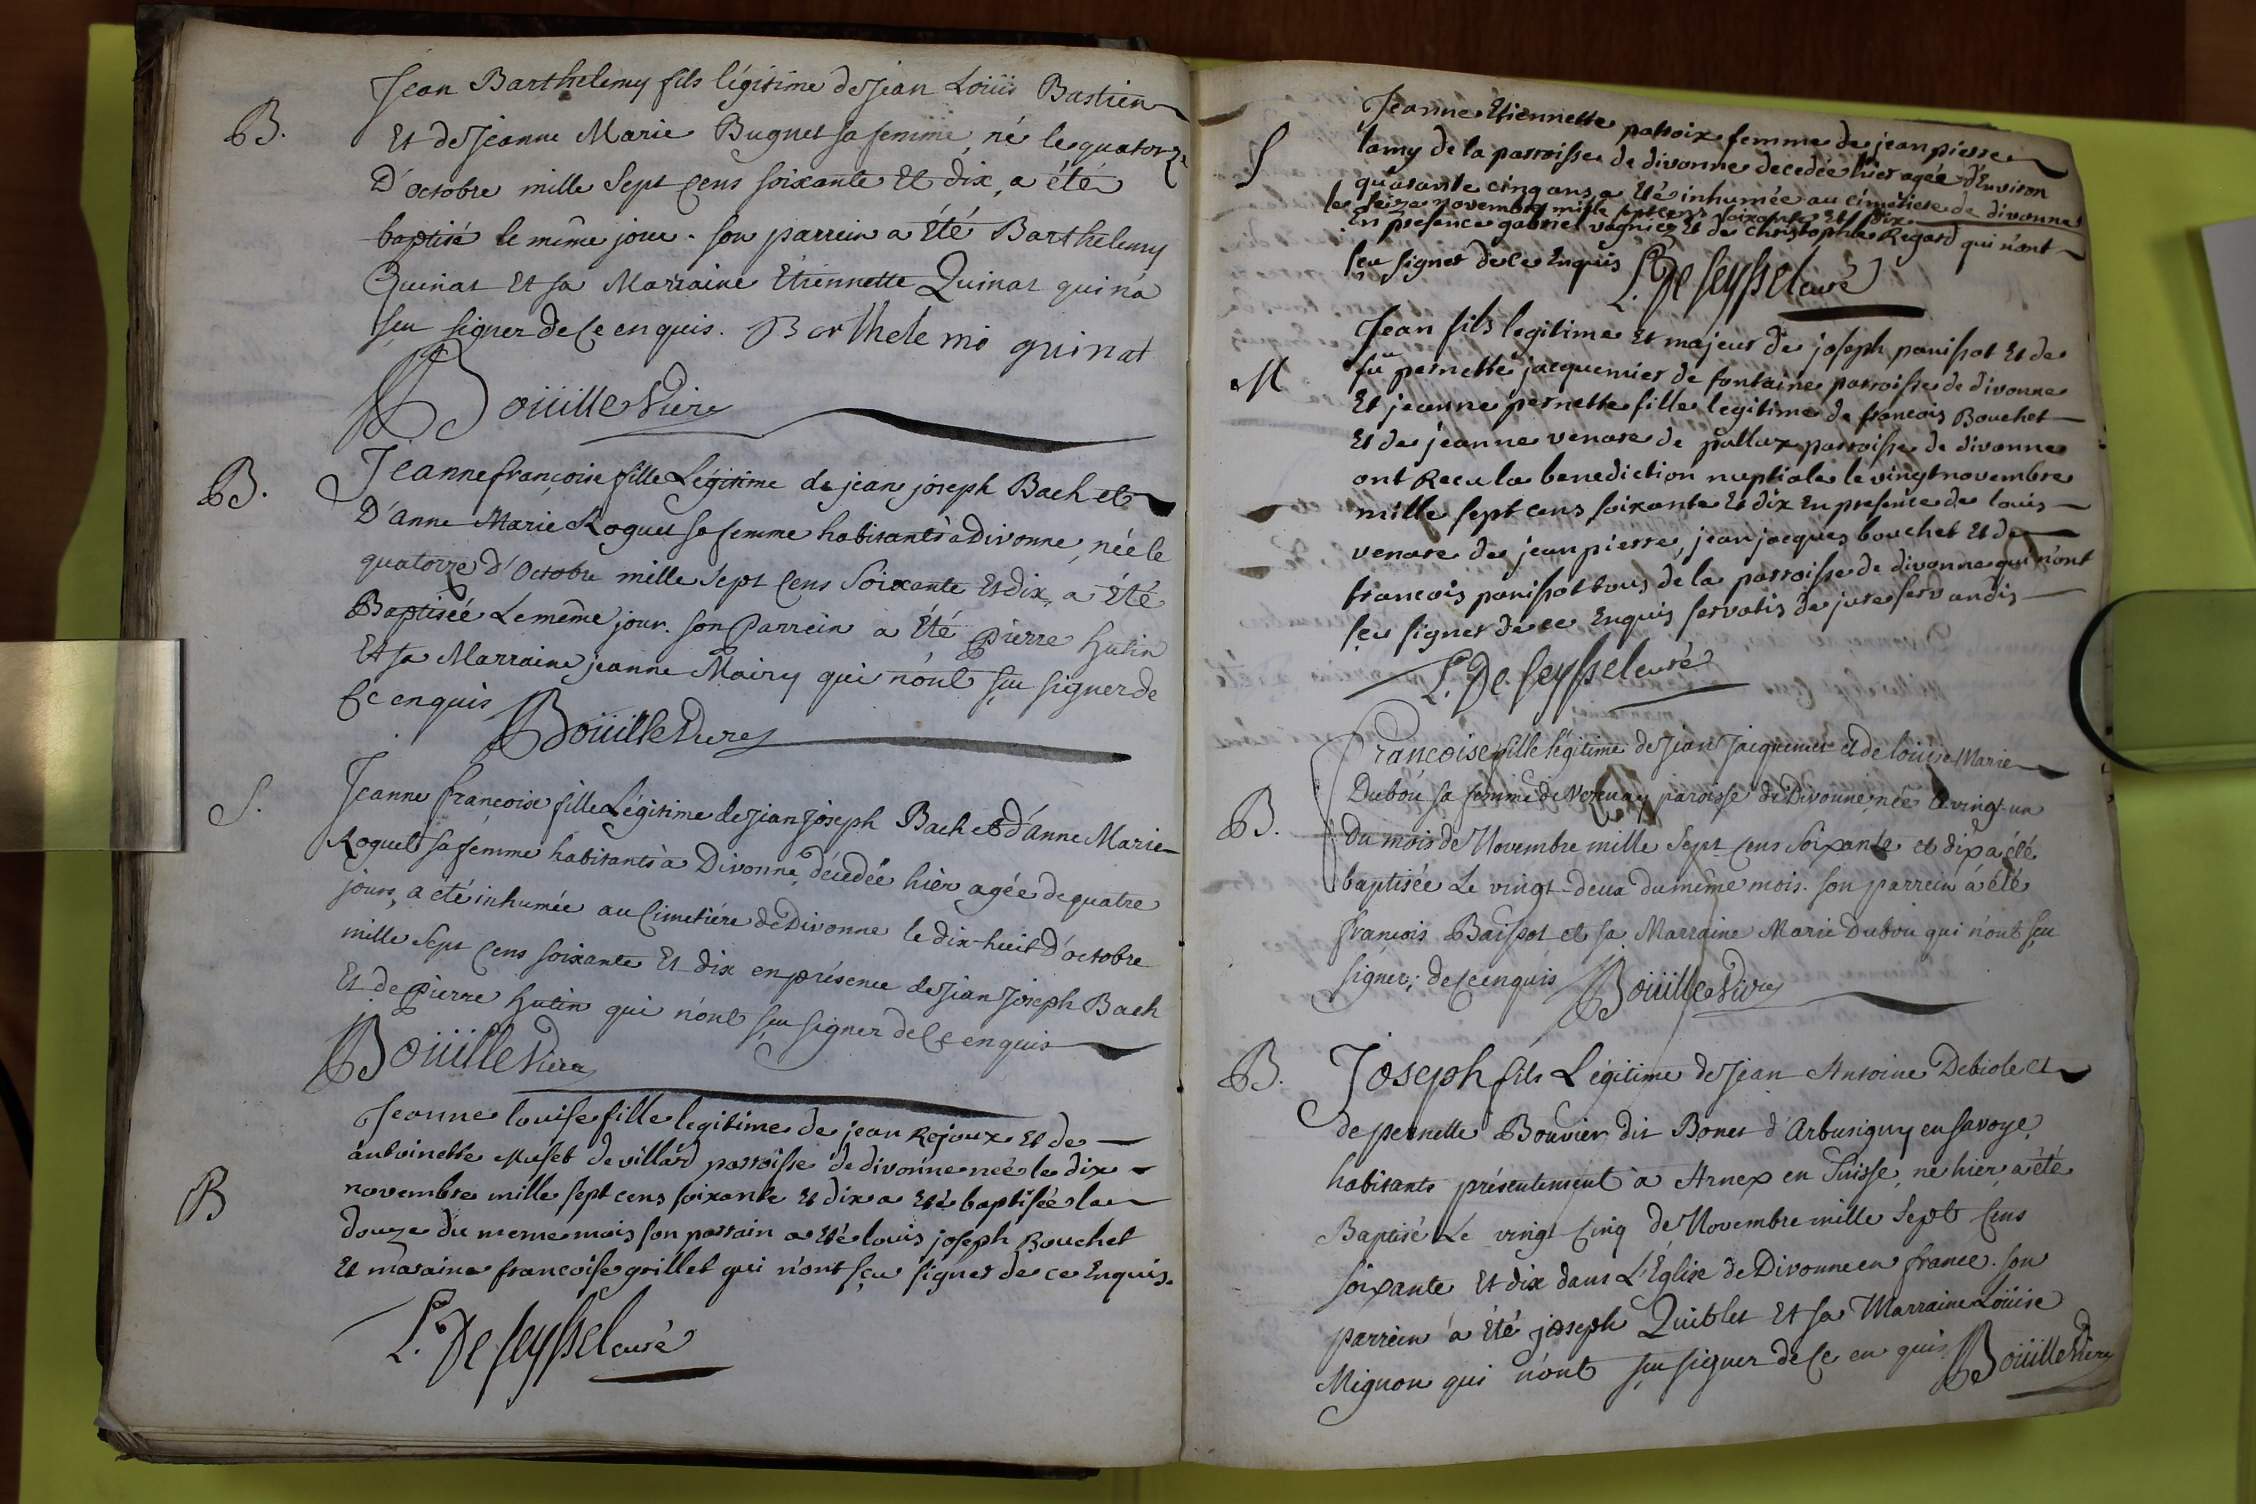 B.
Jean Barthelemy fils légitime de Jean Loüis Bastien
Et de Jeanne Marie Bugnet sa femme, né le quatorze
D'octobre mille Sept Cens soixante Et dix, a été
baptisé le même jour. son parrein a Eté Barthelemy
Quinat Et sa Marraine Etiennette Quinat qui n'a
sçu signer de Ce enquis. Barthelemi quinat
Boüille Vicre
B.
Jeanne françoise fille Légitime de jean joseph Bach et
D'anne Marie Roguet sa femme habitants à Divonne, née le
quatorze d'Octobre mille Sept Cens Soixante Et dix, a Eté
Baptisée Le même jour. son Parrein a Eté pierre hutin
Et sa Marraine jeanne Mairy qui n'ont sçu signer de
Ce enquis Boüille Vicre
S.
Jeanne françoise fille Légitime de Jean Joseph Bach et d'Anne Marie
Roguet sa femme habitants à Divonne, décedée hier agée de quatre
jours, a été inhumée au Cimetiére de Divonne le dix-huit d'octobre
mille Sept Cens soixante Et dix en présence de Jean Joseph Bach
Et de Pierre hutin qui n'ont sçu signer de Ce enquis
Boüille Vicre
B
Jeanne louise fille legitime de jean Rejoux Et de
antoinette Muset de villard parroisse de divonne neé le dix
novembre mille sept cens soixante Et dix a Eté baptisée le
douze du meme mois son parrain a Eté louis joseph Bouchet
Et maraine francoise grillet qui n'ont sçu signer de ce Enquis.
L. De Seyssel curé
S
Jeanne Etiennette parroix femme de jean pierre
lamy de la parroisse de divonne decedée hier agée d'Environ
quarante cinq ans a Eté inhumée au cimetiere de divonne
le seize novembre mille sept cens soixante Et dix
En presence gabriel vagniez Et de christophle Regard qui n'ont
sçu signer de ce Enquis L. De Seyssel curé
M
Jean fils legitime Et majeur de joseph panissot Et de
fû pernette jacquemier de fontaine parroisse de divonne
Et jeanne pernette fille legitime de francois Bouchet
Et de jeanne venare de pallux parroisse de divonne
ont Recu la benediction nuptiale le vingt novembre
mille sept cens soixante Et dix En presence de louis
venare de jean pierre, jean jacques bouchet Et de
francois panissot tous de la parroisse de divonne qui n'ont
sçu signer de ce Enquis servatis de jure servandis
L. De Seyssel curé
B.
Francoise fille légitime de Jean Jacquemier et de Louise Marie
Dubou sa femme de Vesenay paroisse de Divonne, née le vingt-un
du mois de Novembre mille Sept Cens Soixante et dix a été
baptisée Le vingt-deux du même mois. son parrein a été
françois Baissot et sa Marraine Marie Dubou qui n'ont sçu
signer, de Ce enquis Boüille Vicre
B.
Joseph fils Légitime de Jean Antoine Debiole et
de pernette Bouvier dit Bonet d'Arbusigny en Savoye
habitants présentement à Arnex en Suisse, né hier, a été
Baptisé Le vingt Cinq de Novembre mille Sept Cens
soixante Et dix dans L'Eglise de Divonne en france. son
parrein a Eté joseph Quiblet Et sa Marraine Loüise
Mignon qui n'ont sçu signer de Ce en quis Boüille Vicre